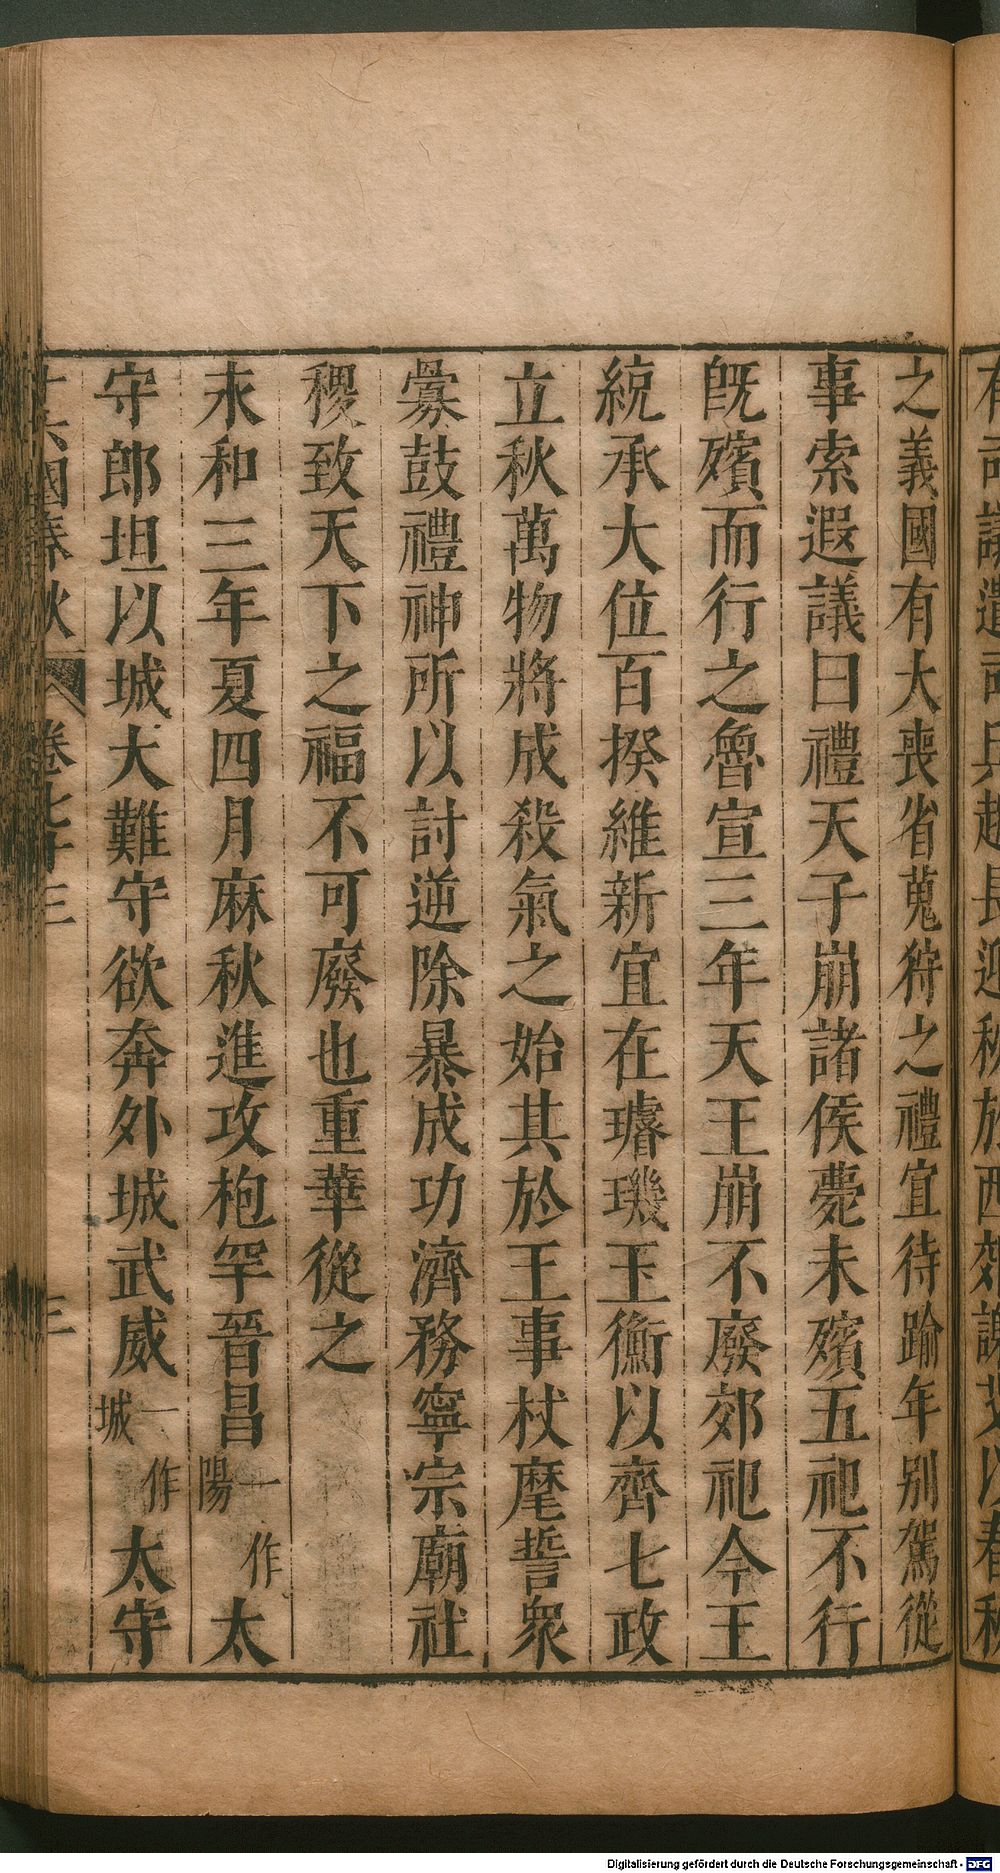 之義國有大喪省蒐狩之禮宜待踰年別駕從
事索遐議曰禮天子崩諸侯薨未殯五祀不行
旣殯而行之魯宣三年天王崩不廢郊祀今王
統承大位百揆維新宜在璿璣玉衡以齊七政
立秋萬物將成殺氣之始其於王事杖麾誓衆
釁鼓禮神所以討逆除暴成功濟務寧宗廟社
稷致天下之福不可廢也重華從之
永和三年夏四月麻秋進攻枹罕晉昌一作陽太
守郎坦以城大難守欲奔外城武威一作城太守
十六國春秋 卷七十三 三
Digitalisierung gefördert durch die Deutsche Forschungsgemeinschaft - DFG